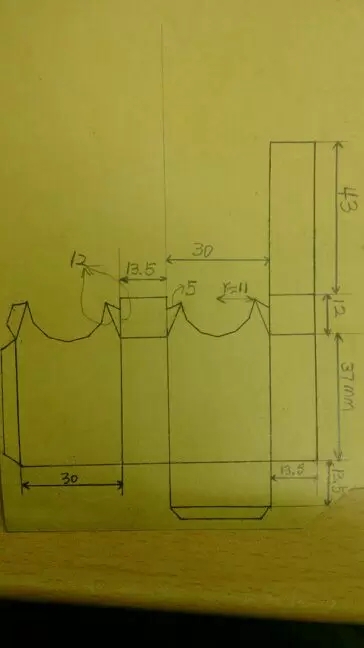 43
30
12
13.5
5
r=11
12
37mm
30
13.5
12.5